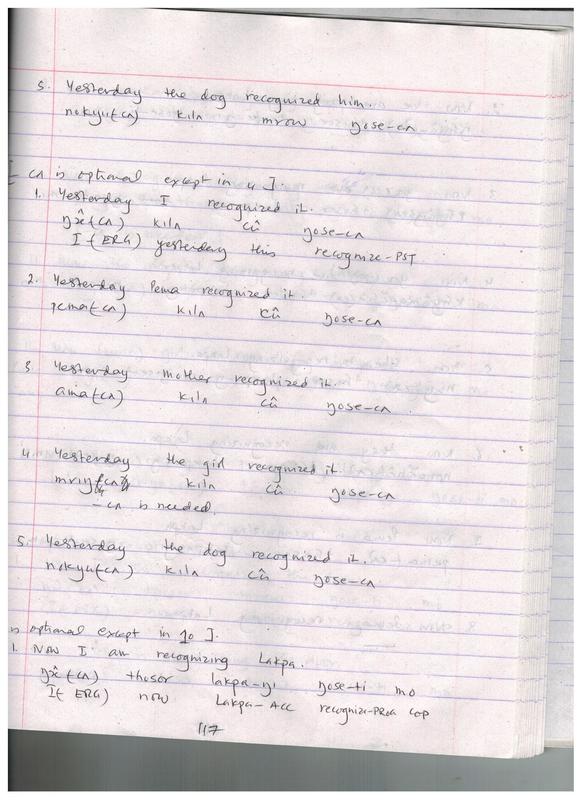 5. Yesterday the dog recognized him.
nokyu(cʌ) kilʌ mrow ŋose-cʌ
cʌ is optional except in 4].
1. Yesterday I recognized it.
ŋx̂(cʌ) kilʌ cû ŋose-cʌ
I(ERG) yesterday this recognize-PST
2. Yesterday Pema recognized it.
pema(cʌ) kilʌ cû ŋose-cʌ
3. Yesterday mother recognized it.
ama(cʌ) kilʌ cû ŋose-cʌ.
4. Yesterday the girl recognized it
kilʌ cû ŋose-cʌ
-cʌ is needed.
5. Yesterday the dog recognized it.
nokyu(cʌ) kilʌ cû ŋose-cʌ
is optional except in 10].
1. Now I am recognizing Lakpa.
ŋx̂(cʌ) thosor lakpa-ŋi ŋose-ti mo
I(ERG) now Lakpa-ACC recognize-PROG COP
117